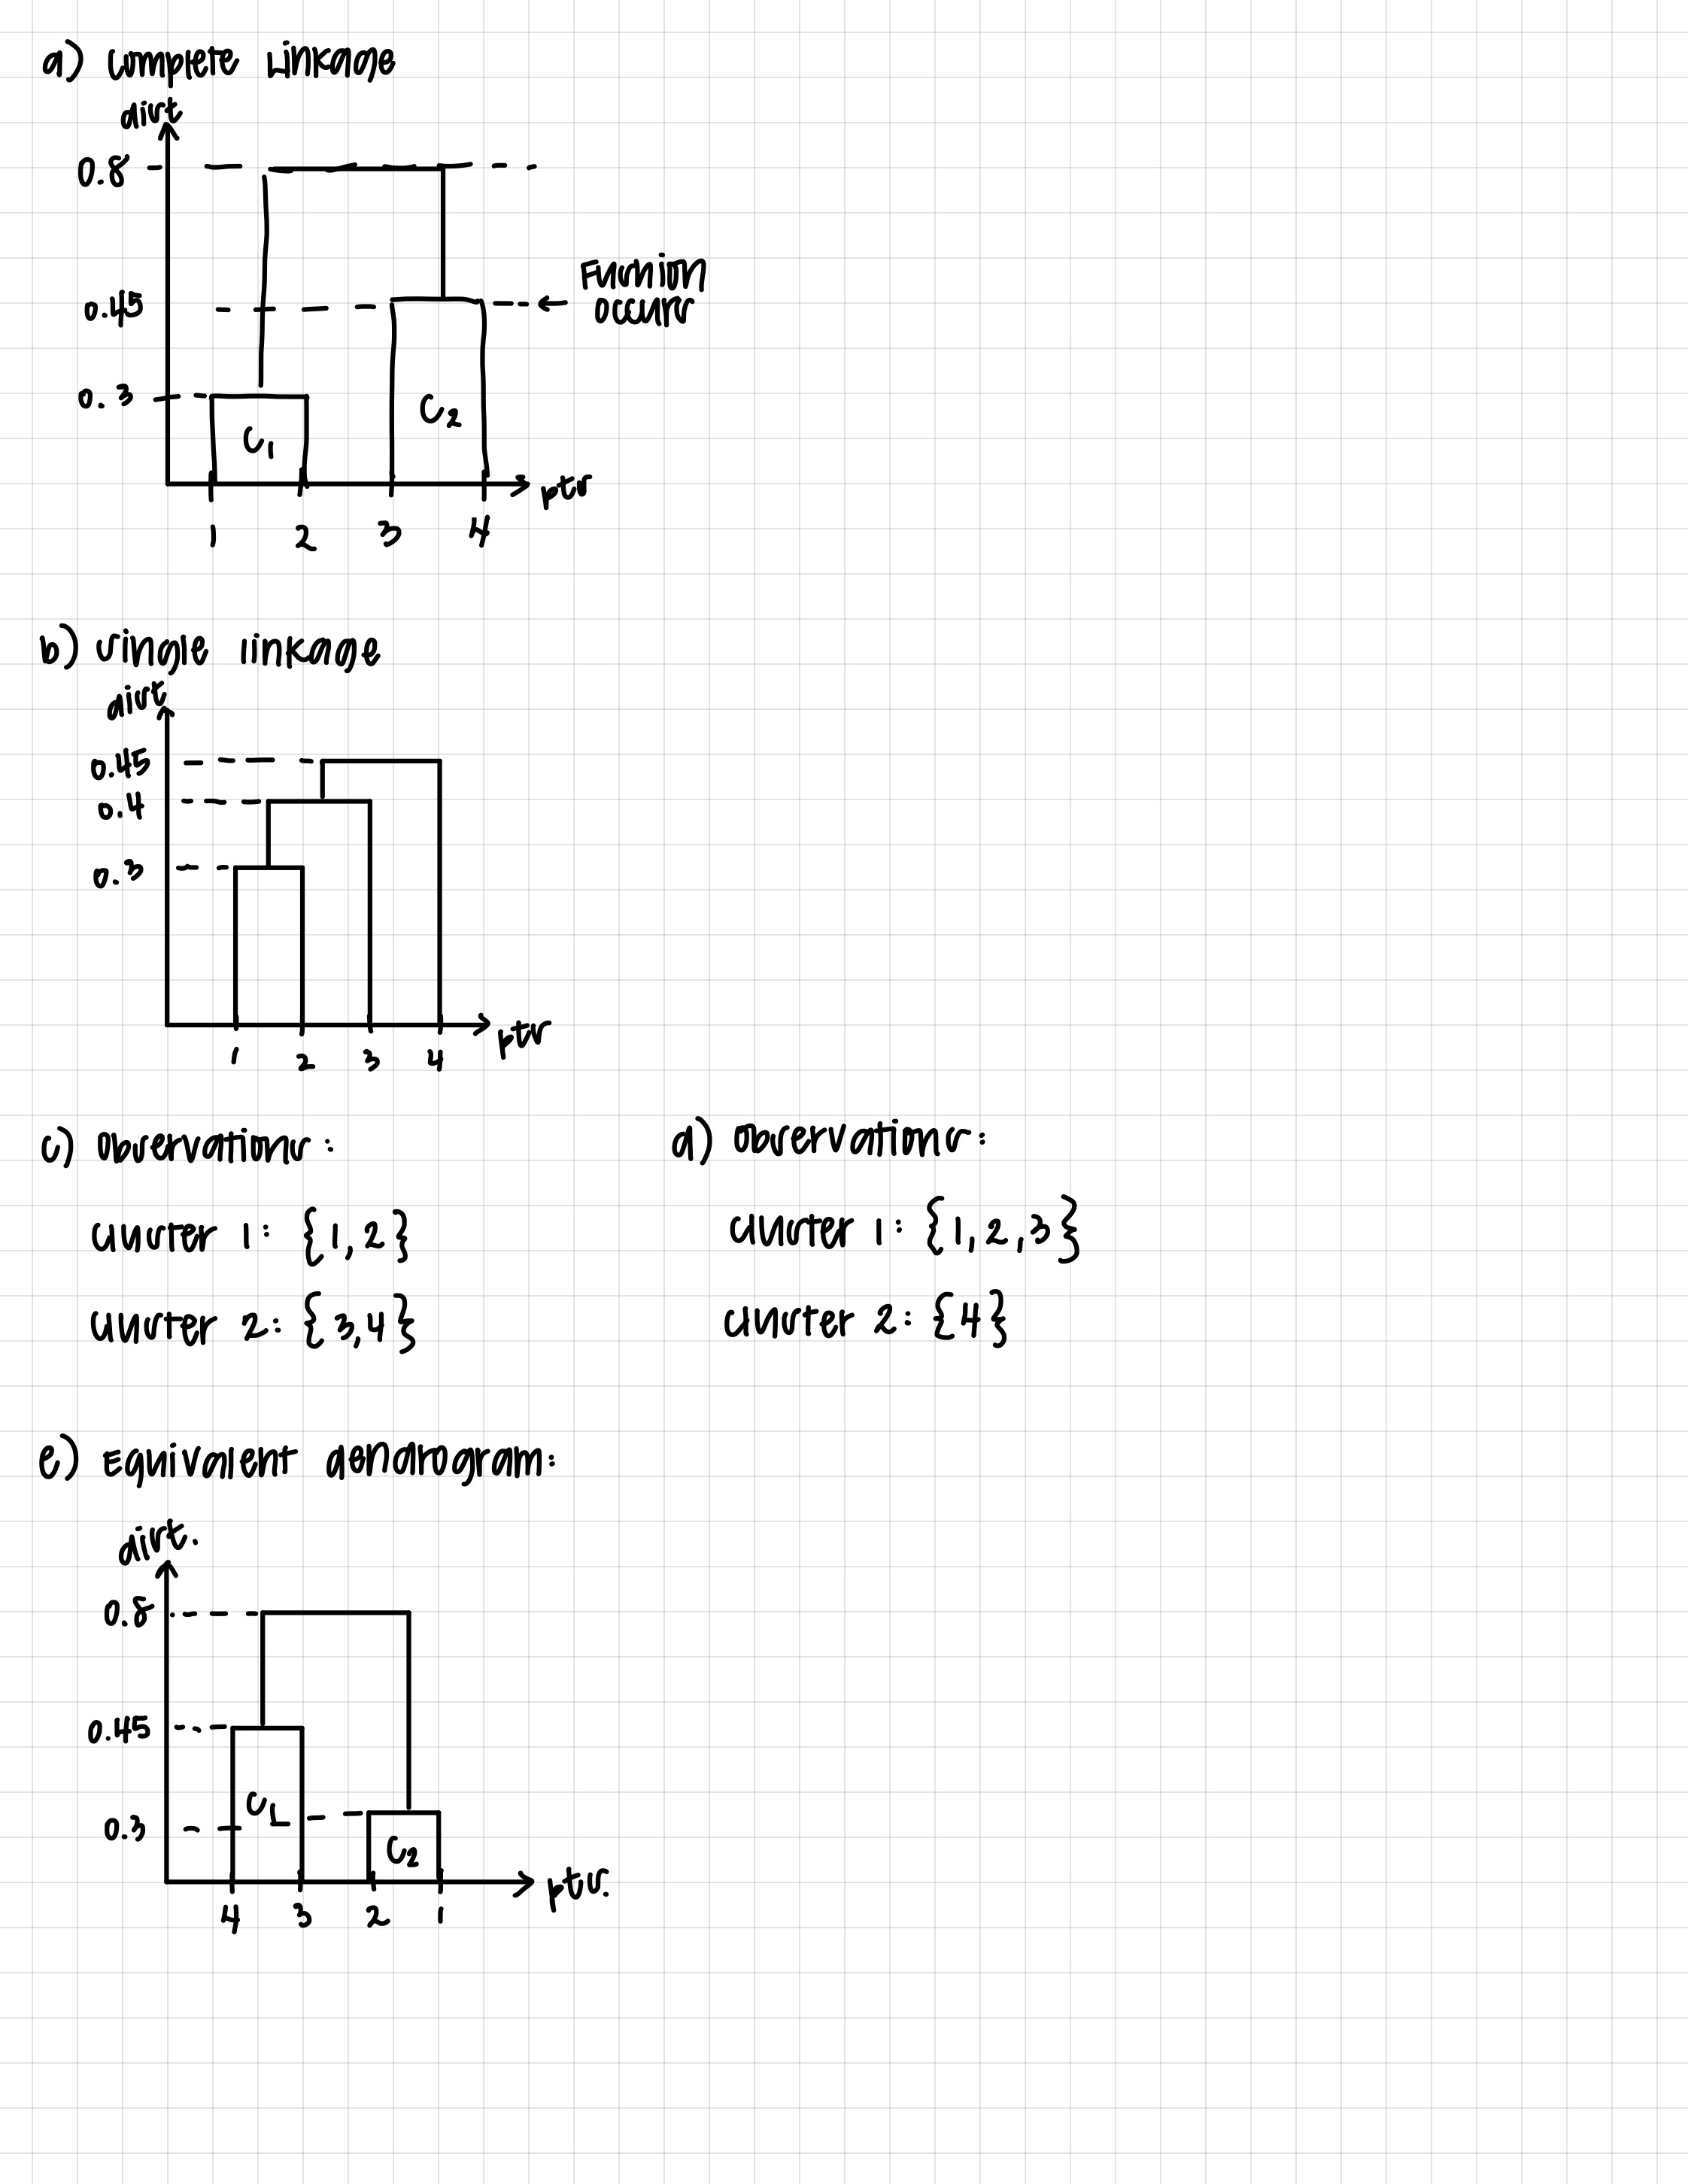 a) Complete Linkage
dist
0.8
Fusion
0.45
occurs
0.3
C1
C2
pts
1 2 3 4
b) single linkage
dist
0.45
0.4
0.3
pts
1 2 3 4
c) Observations:
cluster 1: {1, 2}
cluster 2: {3,4}
d) Observations:
cluster 1: {1, 2, 3}
cluster 2: {4}
e) Equivalent dendrogram:
dist.
0.8
0.45
C1
0.3
C2
pts.
4 3 2 1